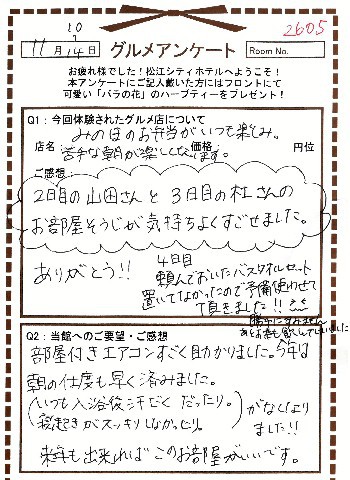 10
11月14日 グルメアンケート Room No. 2605
お疲れ様でした！松江シティホテルへようこそ！
本アンケートにご記入戴いた方にはフロントにて
可愛い「バラの花」のハーブティーをプレゼント！
Q1：今回体験されたグルメ店について
みのりのお弁当がいつも楽しみ。
店名 価格 円位
苦手な朝が楽しくなります。
ご感想
2日目の山田さんと3日目の杜さんの
お部屋そうじが気持ちよくすごせました。
ありがとう!!
4日目
頼んでおいたバスタオルセット
置いてなかったので予備使わせて
頂きました!!
勝手にすみません
Q2：当館へのご要望・ご感想
部屋付きエアコンすごく助かりました。今年は
朝の仕度も早く済みました。
(いつも入浴後汗だくだったり。
寝起きがスッキリしなかったり。) がなくより
ました!!
来年も出来ればこのお部屋がいいです。